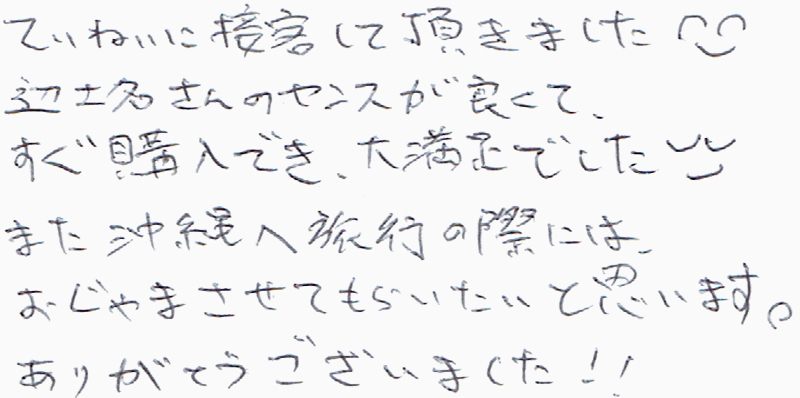 ていねいに接客して頂きました
辺士名さんのセンスが良くて、
すぐ購入でき、大満足でした
また沖縄へ旅行の際には、
おじゃまさせてもらいたいと思います。
ありがとうございました!!